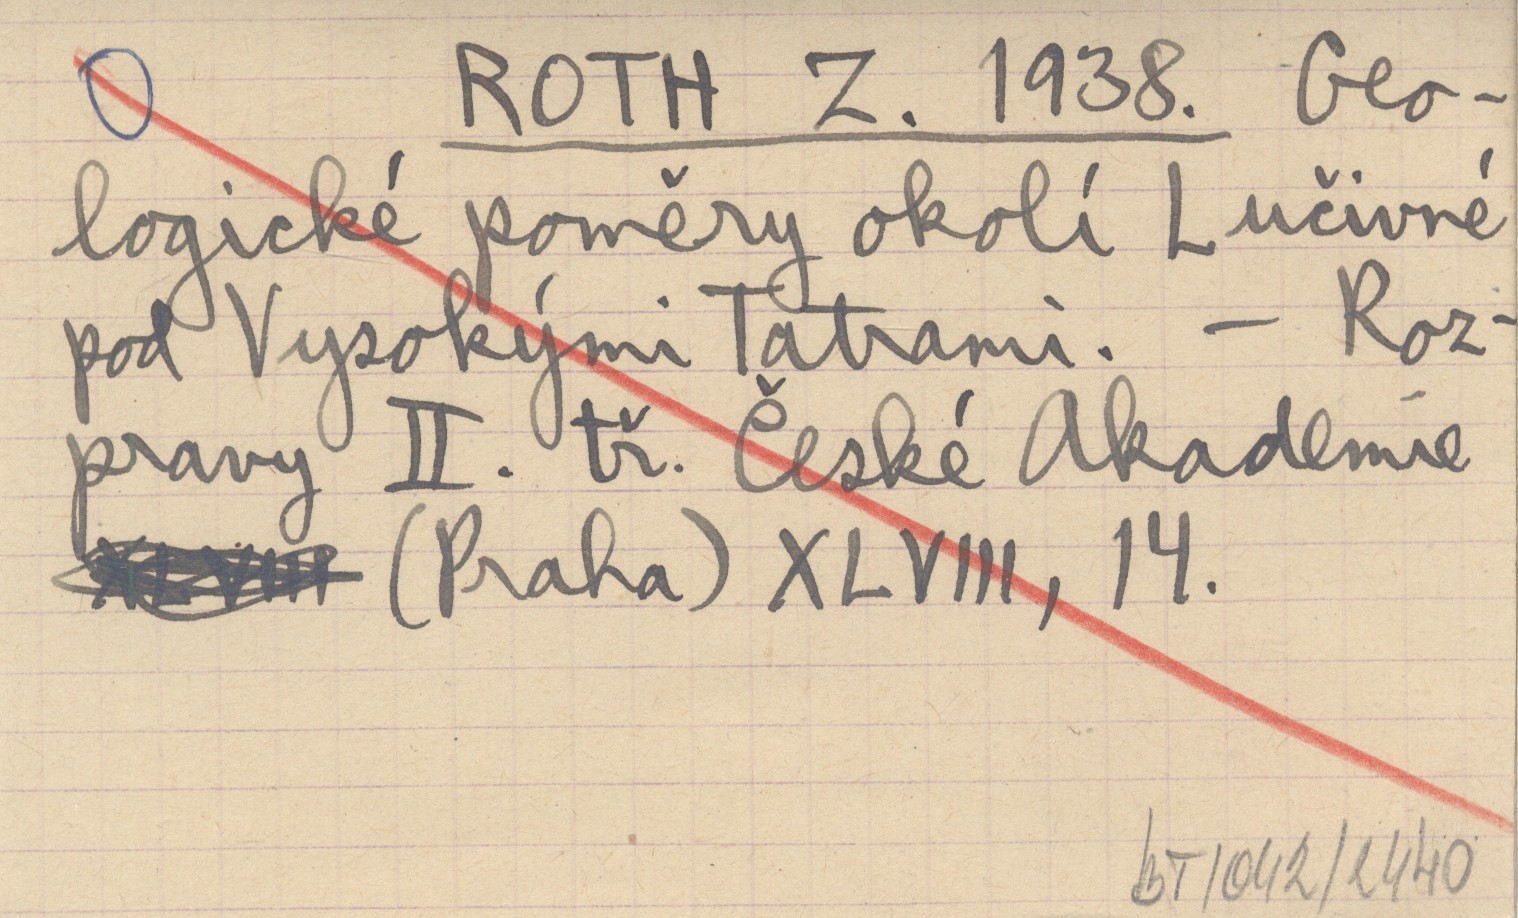 O ROTH Z. 1938. Geo-
logické poměry okolí Lučivné
pod Vysokými Tatrami. – Roz-
pravy II. tř. České Akademie
XLVIII (Praha) XLVIII, 14.
bT/042/2440